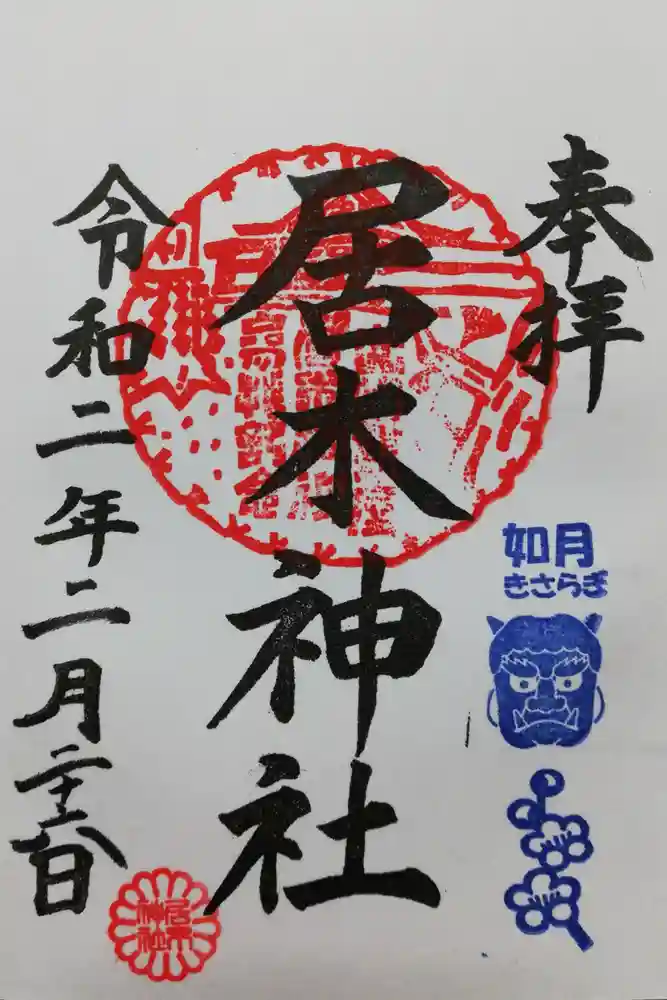 奉拝
居木神社
令和二年二月二十六日
如月
きさらぎ
居木
神社